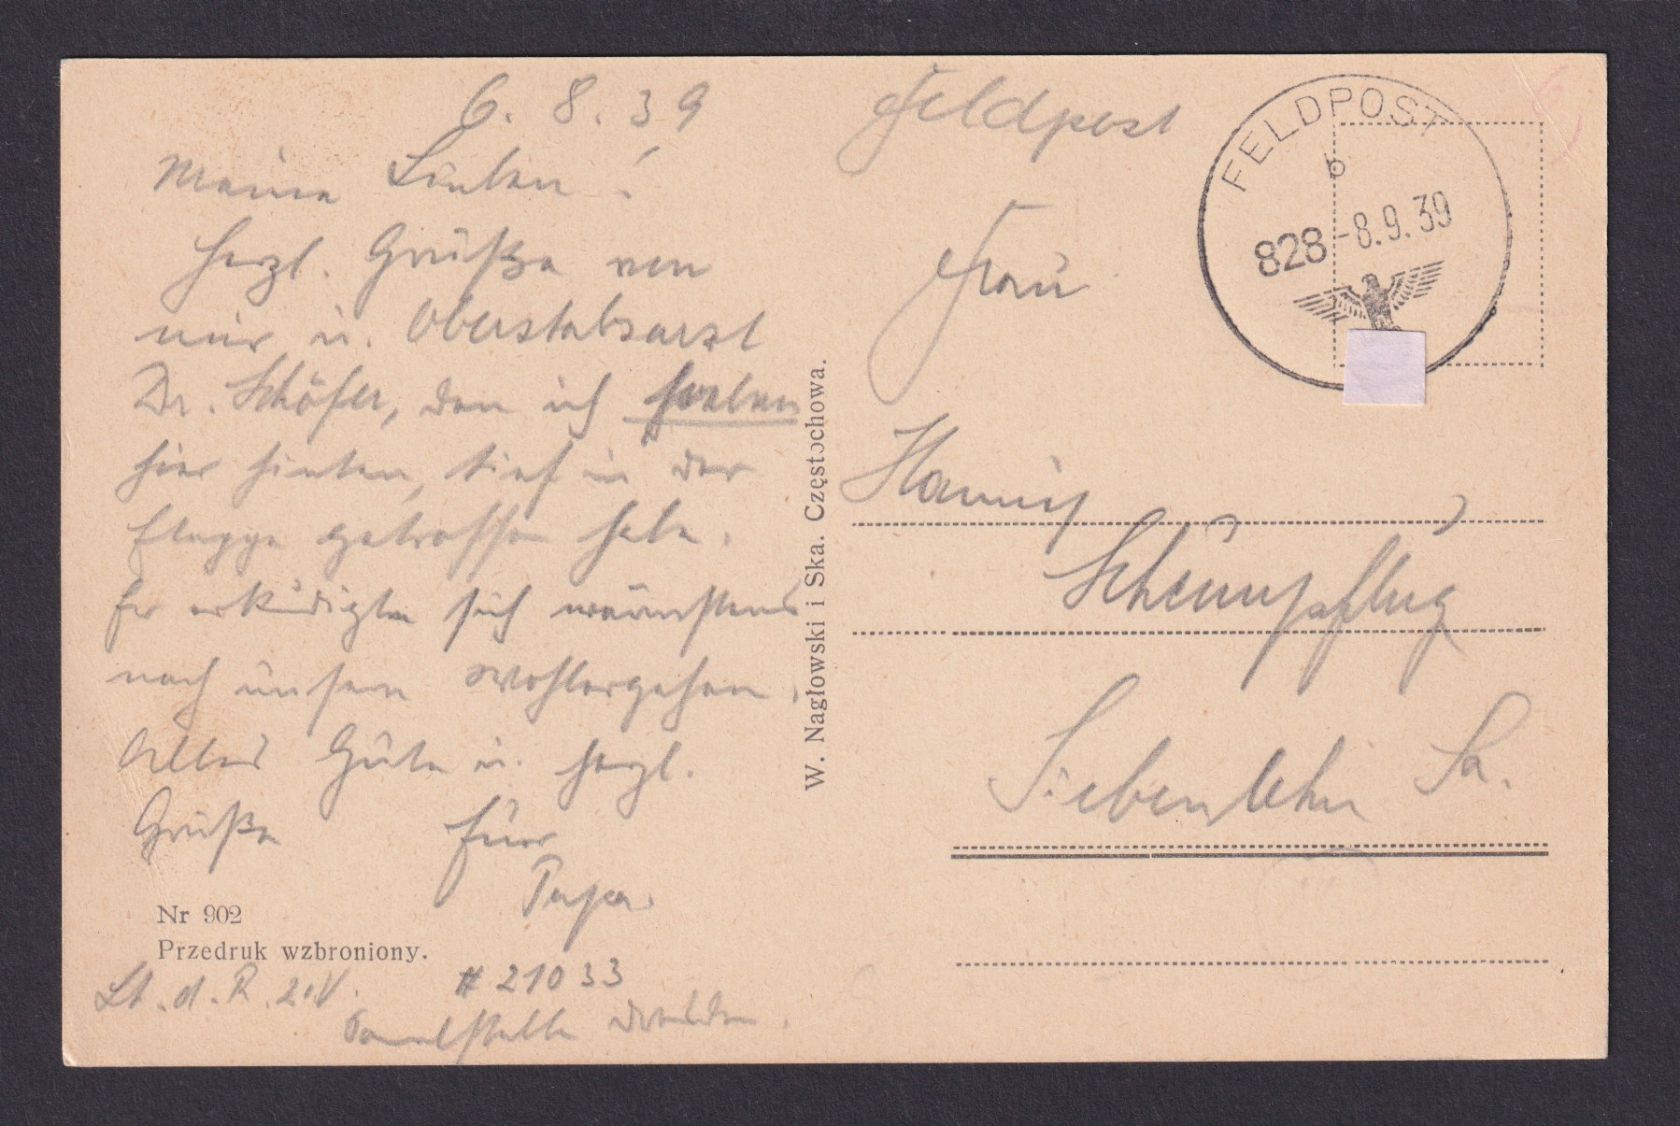 6. 8. 39
Meine Lieben!
Herzl. Grüße von
mir u. Oberstabsarzt
Dr. Schäfer, den ich soeben
hier hinten, tief in der
Etappe getroffen habe.
Er erkundigte sich wärmstens
nach unserm Wohlergehen.
Alles Gute u. herzl.
Grüße Euer
Papa.
Nr 902
Przedruk wzbroniony.
Lt. d. R. z. V.
# 21033
Dresden.
W. Nagłowski i Ska. Częstochowa.
Feldpost
FELDPOST
b
828 -8.9.39
Frau
Schimpflug
Siebenlehn Sa.